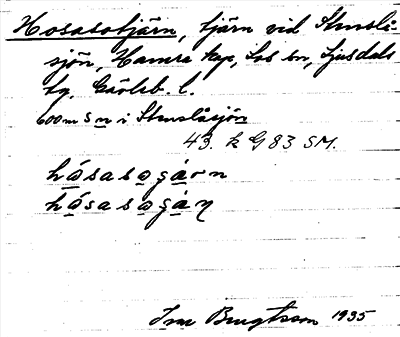 Hosasotjärn, tjärn vid Stensla-
sjön, Hamra kap, Los sn, Ljusdals
tg. Gävleb. l.
600 m S n i Stenslåsjön
43. k G 83 SM.
hásasogárn
hásasogáη
Bengtsson 1935